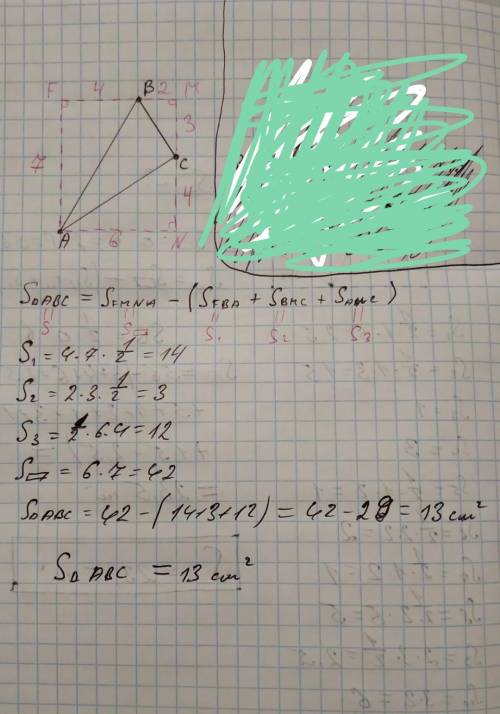 F 4 B 2 M
3
7 C
4
A 6 N
S△ABC = SFMNA - (SFBA + SBMC + SANC)
S S▭ S₁ S₂ S₃
S₁ = 4·7·1/2 = 14
S₂ = 2·3·1/2 = 3
S₃ = 1/2·6·4 = 12
S▭ = 6·7 = 42
S△ABC = 42 - (14+3+12) = 42 - 29 = 13 cm²
S△ABC = 13 cm²